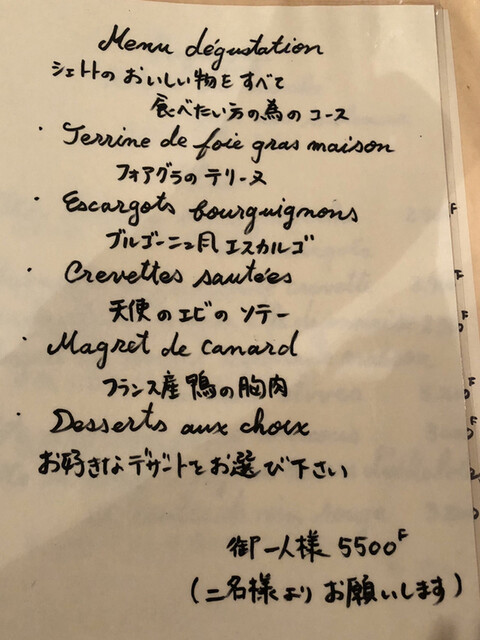 Menu dégustation
シェトトの おいしい物を すべて
食べたい方の為の コース
・ Terrine de foie gras maison
フォアグラの テリーヌ
・ Escargots bourguignons
ブルゴーニュ風 エスカルゴ
・ Crevettes sautées
天使のエビの ソテー
・ Magret de canard
フランス産 鴨の胸肉
・ Desserts aux choix
お好きなデザートをお選び下さい
御一人様 5500F
(二名様より お願いします)